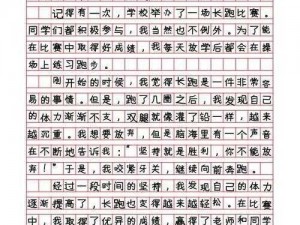 记得有一次，学校举办了一场长跑比赛。
同学们都积极参与，我当然也不例外。为了能
在比赛中取得好成绩，我每天放学后都会在操
场上练习跑步。
刚开始的时候，我觉得长跑是一件非常容
易的事情。但是，跑了几圈之后，我发现自己
的体力渐渐不支，双腿就像灌了铅一样，越来
越沉重。我想要放弃，但是脑海里有一个声音
在不断地告诉我：“坚持就是胜利，你不能放
弃！”于是，我咬紧牙关，继续向前奔跑。
经过一段时间的坚持，我发现自己的体力
逐渐提高了，长跑也变得越来越轻松。在比赛
中，我取得了优异的成绩，赢得了老师和同学